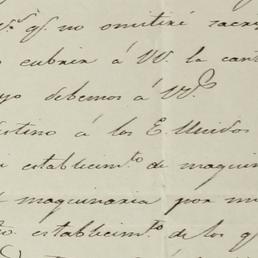 V.s q.e no omitiré sacri
cubrir á VV. la cant
yo debemos á VV.
destino á los E. Unidos
establecim.to de maquin
maquinaria por mi
to. establecim.to de los q